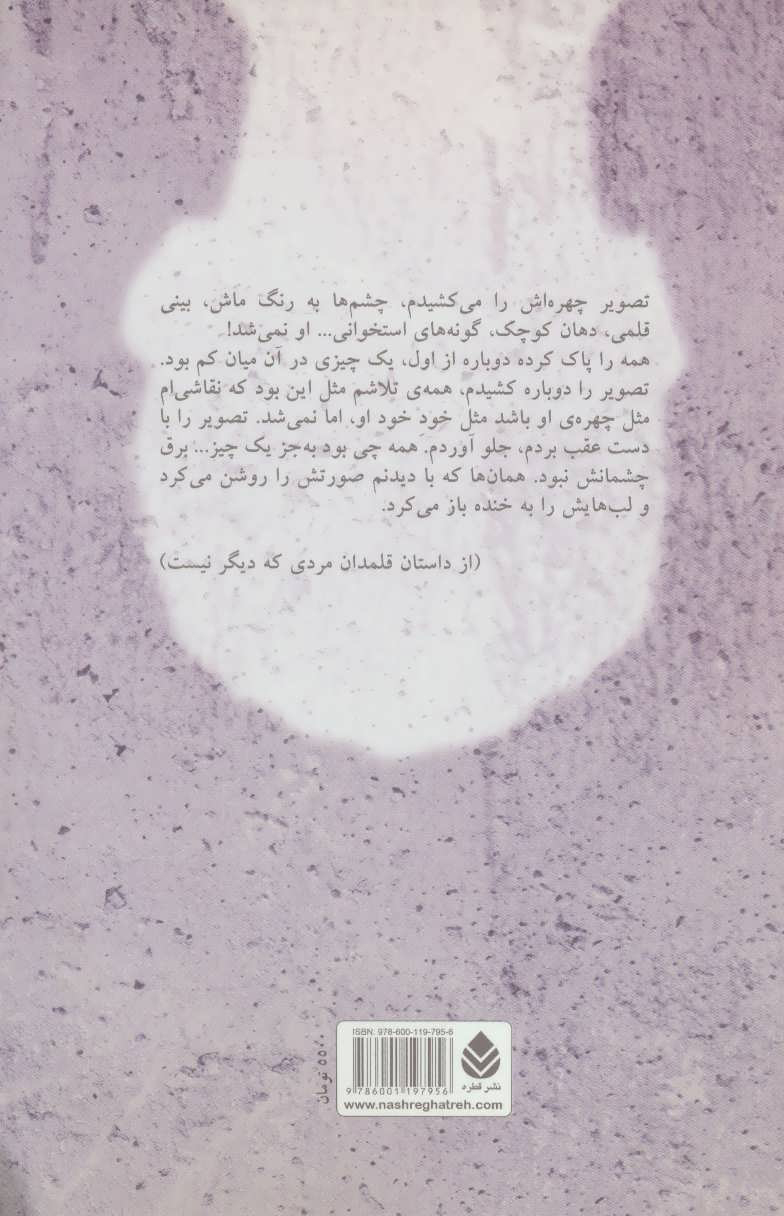 تصویر چهره‌اش را می‌کشیدم، چشم‌ها به رنگ ماش، بینی
قلمی، دهان کوچک، گونه‌های استخوانی... او نمی‌شد!
همه را پاک کرده دوباره از اول، یک چیزی در آن میان کم بود.
تصویر را دوباره کشیدم، همه‌ی تلاشم مثل این بود که نقاشی‌ام
مثل چهره‌ی او باشد مثل خودِ خود او، اما نمی‌شد. تصویر را با
دست عقب بردم، جلو آوردم. همه چی بود به‌جز یک چیز... برق
چشمانش نبود. همان‌ها که با دیدنم صورتش را روشن می‌کرد
و لب‌هایش را به خنده باز می‌کرد.
(از داستان قلمدان مردی که دیگر نیست)
ISBN: 978-600-119-795-6
9 786001 197956
نشر قطره
www.nashreghatreh.com
تومان